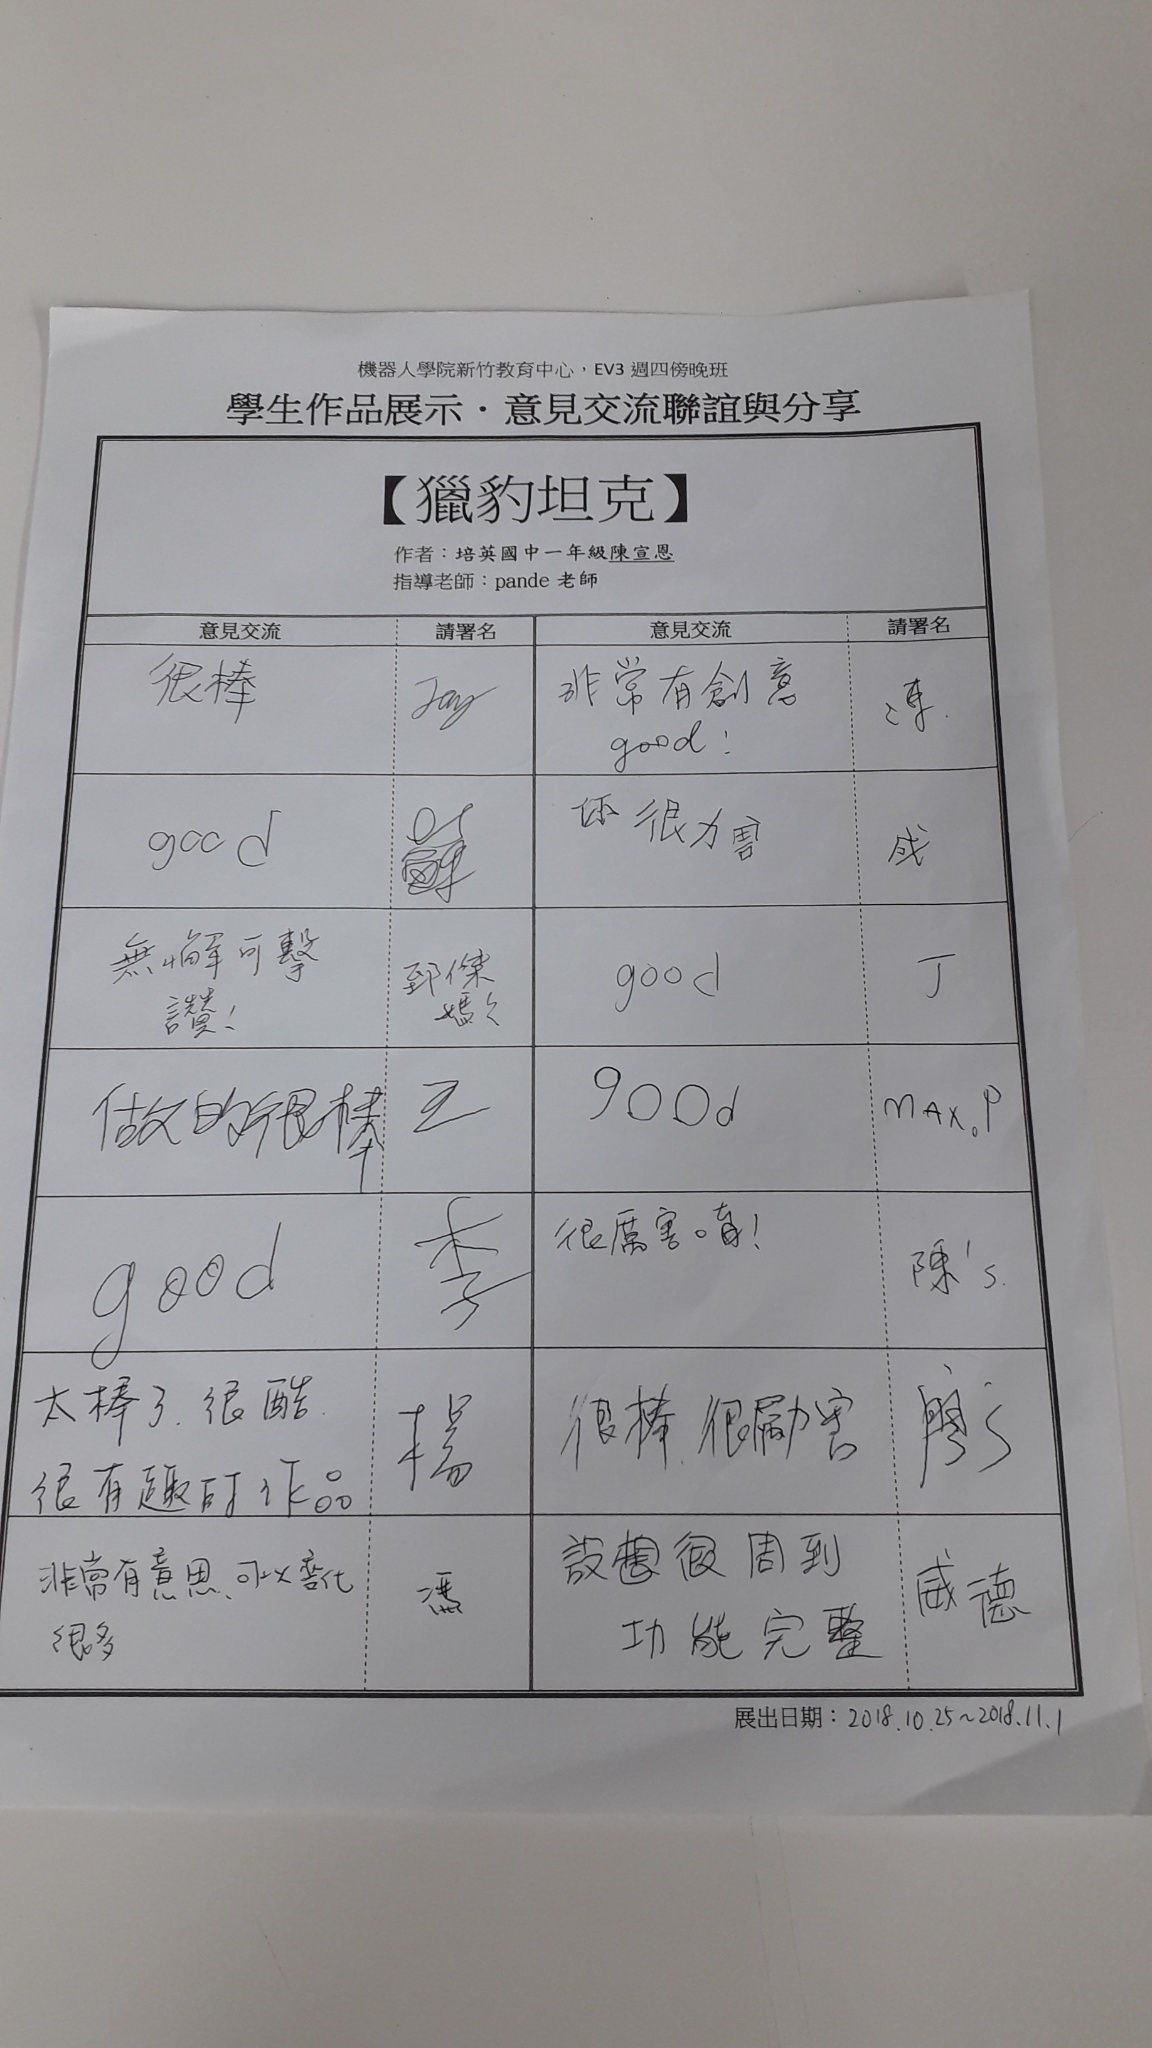 機器人學院新竹教育中心，EV3 週四傍晚班
學生作品展示．意見交流聯誼與分享
【獵豹坦克】
作者：培英國中一年級陳宣恩
指導老師：pande 老師
意見交流 請署名 意見交流 請署名
很棒 Jay
非常有創意
good！
good
你很力害 成
無懈可擊
讚！
傑
媽
good 丁
做的很棒 王
good MAX.P
good 李
很厲害唷！ 陳's
太棒了、很酷
很有趣的作品
楊
很棒、很勵害 廖's
非常有意思、可以變化
很多
馮
設想很周到
功能完整
威德
展出日期：2018.10.25~2018.11.1